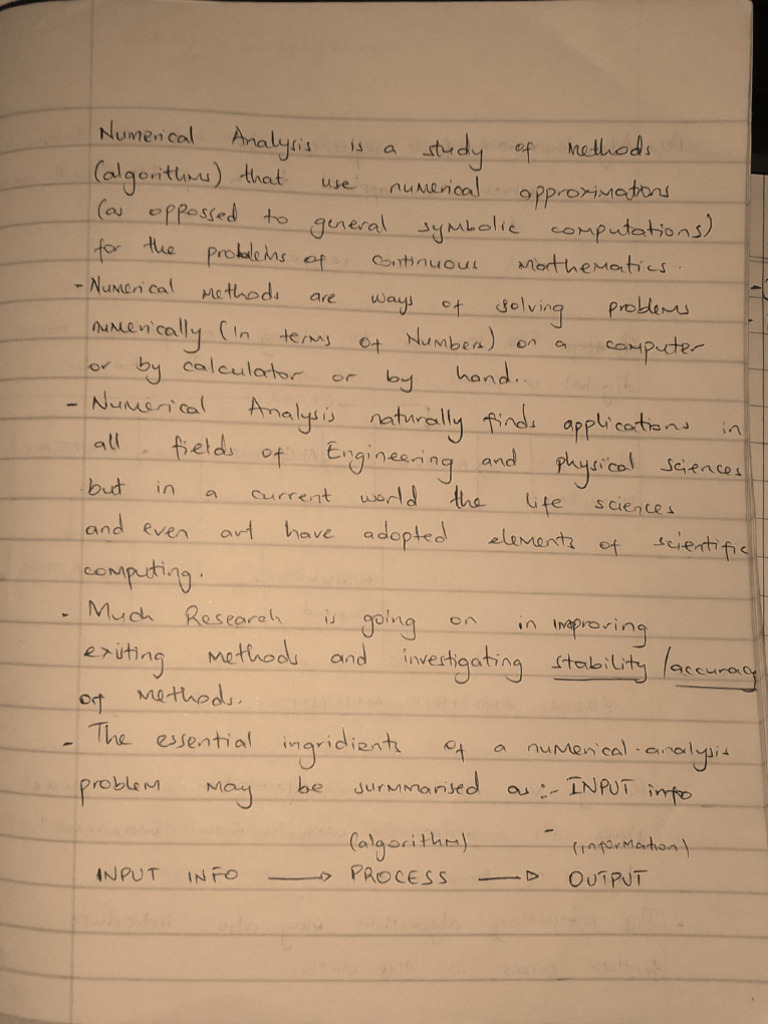 Numerical Analysis is a study of methods
(algorithms) that use numerical approximations
(as oppossed to general symbolic computations)
for the problems of continuous mathematics.
- Numerical methods are ways of solving problems
numerically (in terms of Numbers) on a computer
or by calculator or by hand.
- Numerical Analysis naturally finds applications in
all fields of Engineering and physical sciences
but in a current world the life sciences
and even art have adopted elements of scientific
computing.
- Much Research is going on in improving
existing methods and investigating stability/accuracy
of methods.
- The essential ingridients of a numerical-analysis
problem may be summarised as :- INPUT info
(algorithm) - (information)
INPUT INFO → PROCESS → OUTPUT